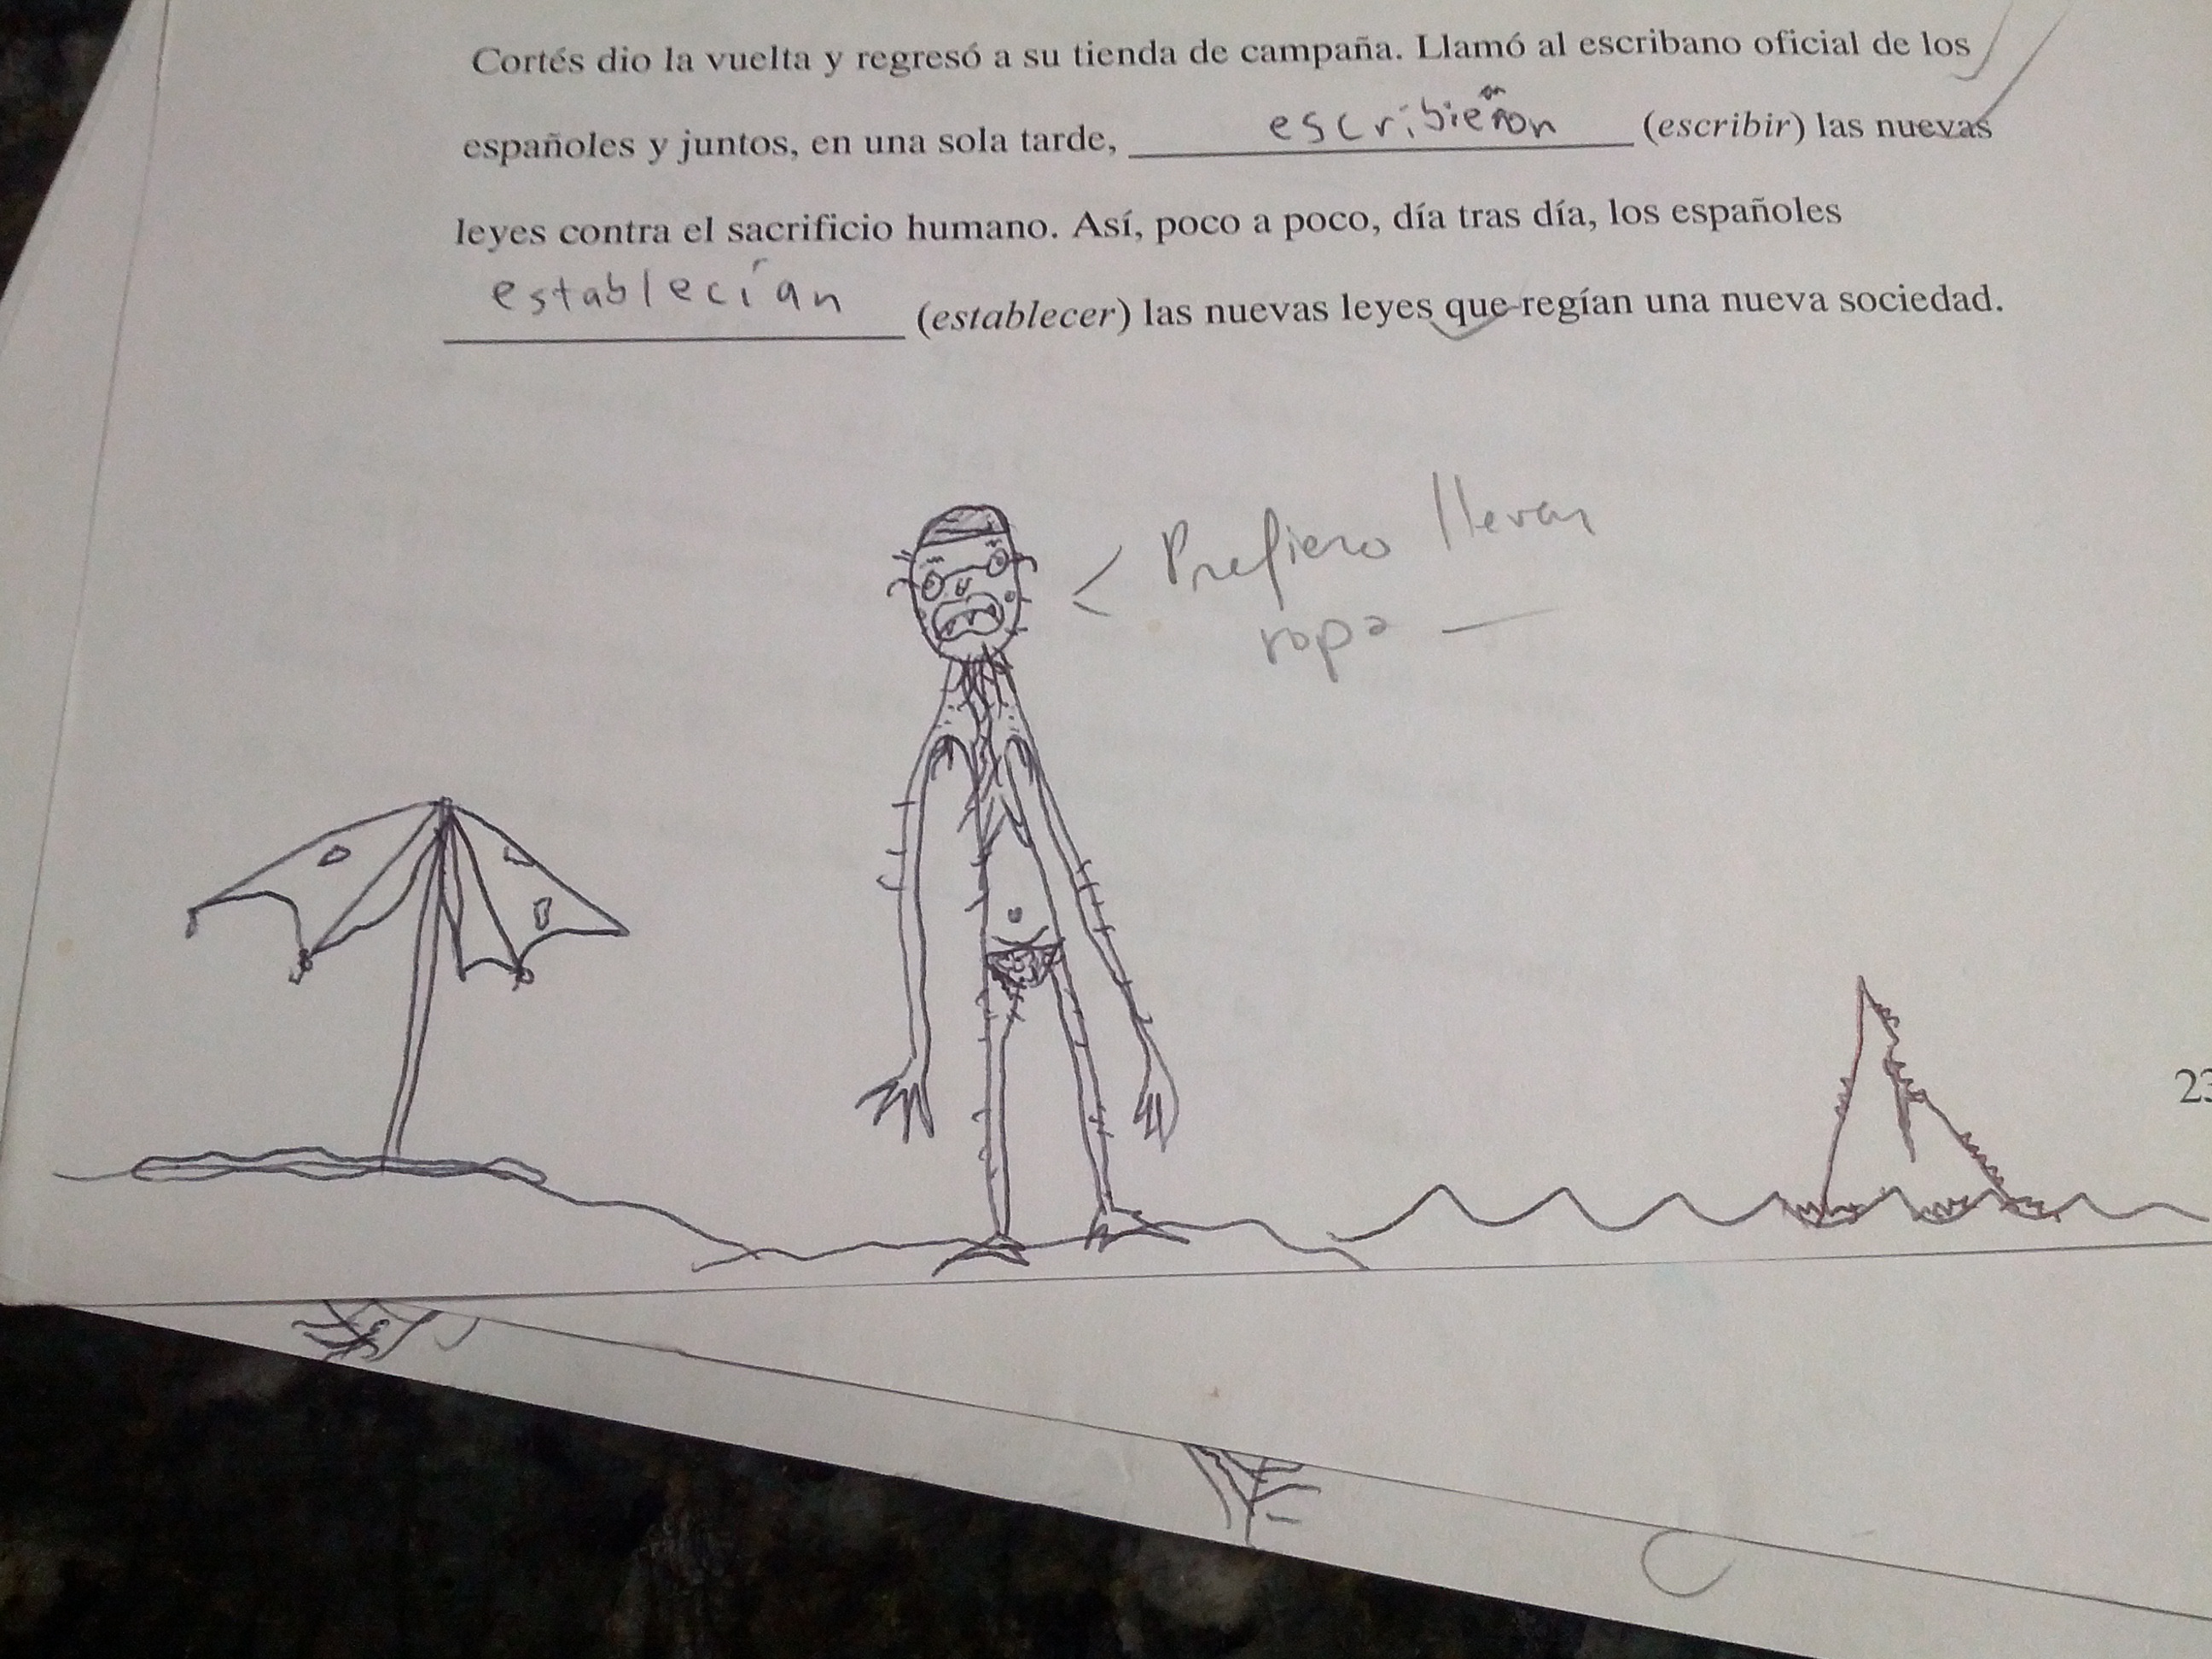 Cortés dio la vuelta y regresó a su tienda de campaña. Llamó al escribano oficial de los
españoles y juntos, en una sola tarde, escribieron (escribir) las nuevas
leyes contra el sacrificio humano. Así, poco a poco, día tras día, los españoles
establecían (establecer) las nuevas leyes que regían una nueva sociedad.
< Prefiero llevar
ropa —
23